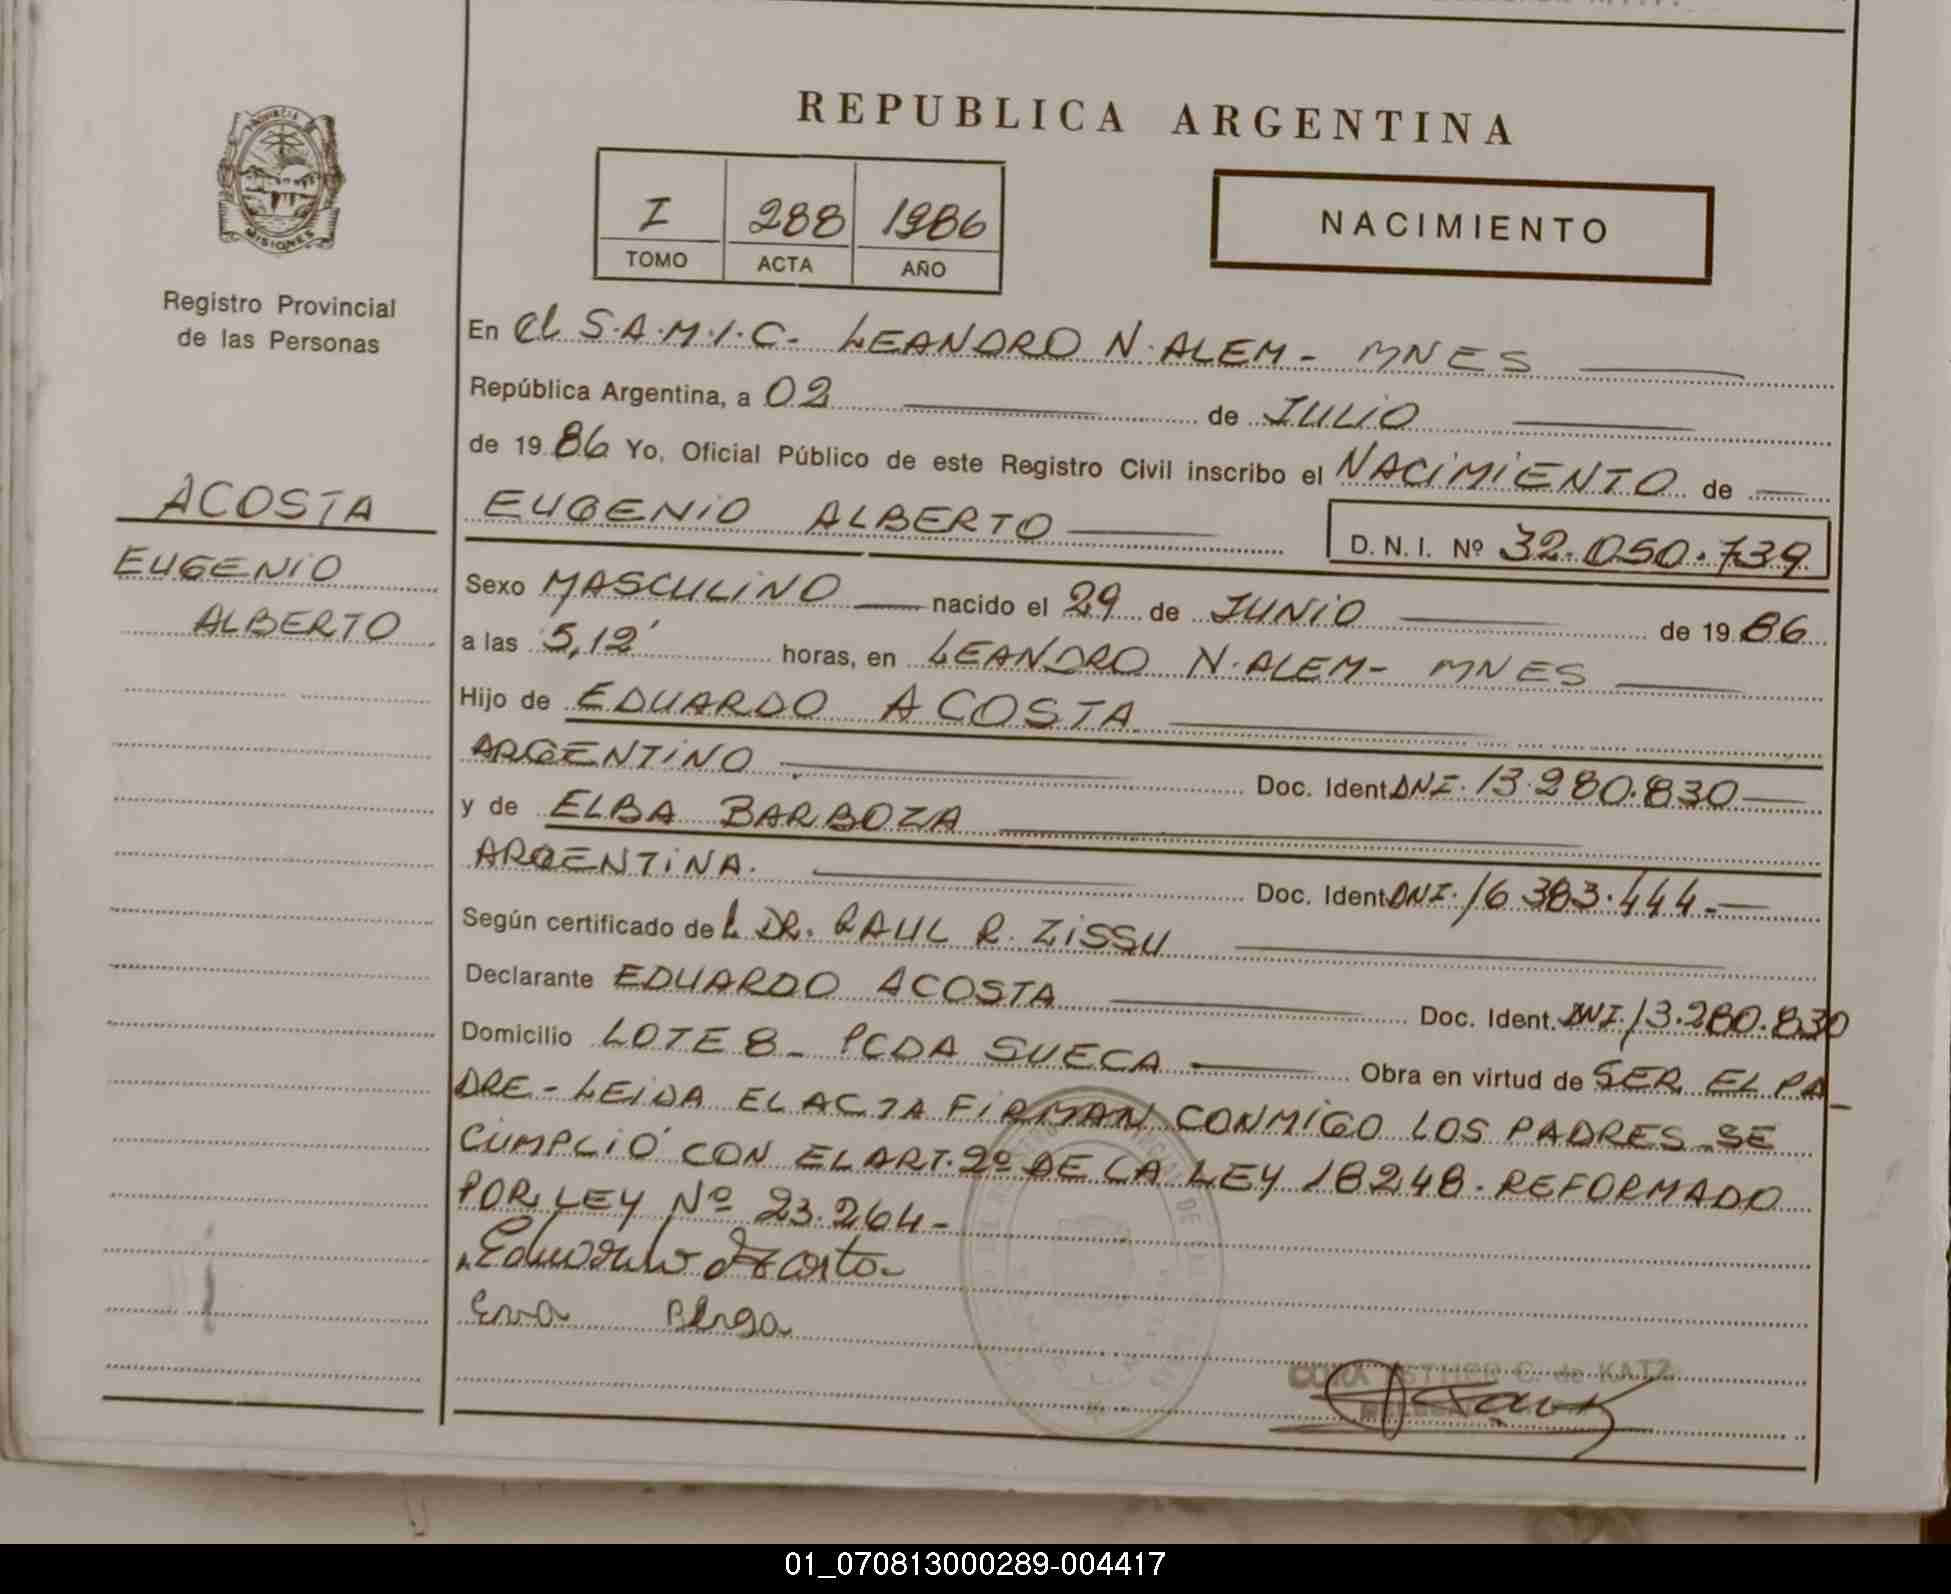 REPUBLICA ARGENTINA
PROVINCIA DE
MISIONES
Registro Provincial
de las Personas
I 288 1986
TOMO ACTA AÑO
NACIMIENTO
En el S.A.M.I.C- LEANDRO N. ALEM - MNES
República Argentina, a 02 de JULIO
de 19 86 Yo, Oficial Público de este Registro Civil inscribo el NACIMIENTO de
ACOSTA
EUGENIO
ALBERTO
EUGENIO ALBERTO
D. N. I. Nº 32.050.739
Sexo MASCULINO nacido el 29 de JUNIO de 19 86
a las 5,12' horas, en LEANDRO N. ALEM- MNES
Hijo de EDUARDO ACOSTA
ARGENTINO Doc. Ident DNI. 13.280.830
y de ELBA BARBOZA
ARGENTINA. Doc. Ident DNI. 16 383.444-
Según certificado de L DR. RAUL R. ZISSU
Declarante EDUARDO ACOSTA Doc. Ident. DNI. 13.280.830
Domicilio LOTE 8- PCDA SUECA Obra en virtud de SER EL PA
DRE- LEIDA EL ACTA FIRMAN CONMIGO LOS PADRES-SE
CUMPLIÓ CON EL ART. 2º DE LA LEY 18248. REFORMADO
POR LEY Nº 23.264-
Eduardo Acosta
ESTHER C. de KATZ
01_070813000289-004417